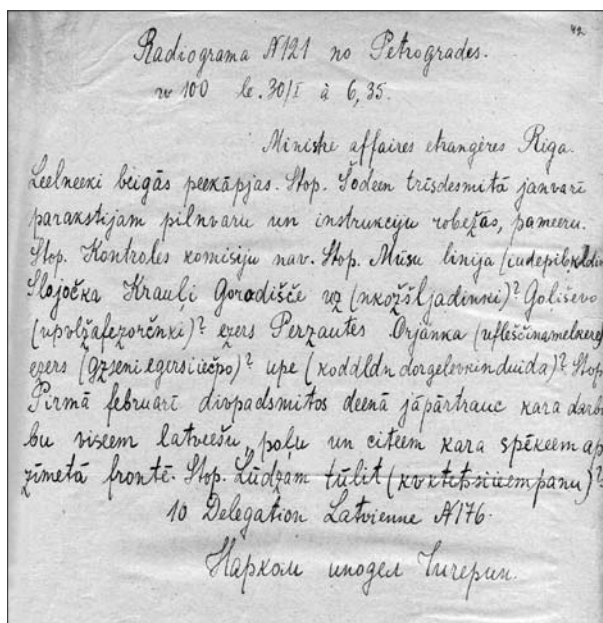 42
Radiograma N121 no Petrogrades.
w 100 le. 30/I à 6,35.
Ministre affaires etrangères Riga.
Leelneeki beigās peekāpjas. Stop. Šodeen trīsdesmitā janvarī
parakstijam pilnvaru un instrukciju robežas, pameeru.
Stop. Kontroles komisiju nav. Stop. Mūsu linija
Slojočka Krauļi Gorodišče uz (nkožšljadinki)? Goļiševo
(upvlžafezorčnki)? ezers Perzautes Orjanka
ezers (gzseniegersiiečpo)? upe (koddldn dorgelevkinduida)? Stop
Pirmā februarī divpadsmitos deenā jāpārtrauc kara darbī
bu viseem latveešu, poļu un citeem kara spēkeem ap
zīmetā frontē. Stop. Lūdzam tūlit
10 Delegation Latvienne N176.
Нарком инодел Чичерин.